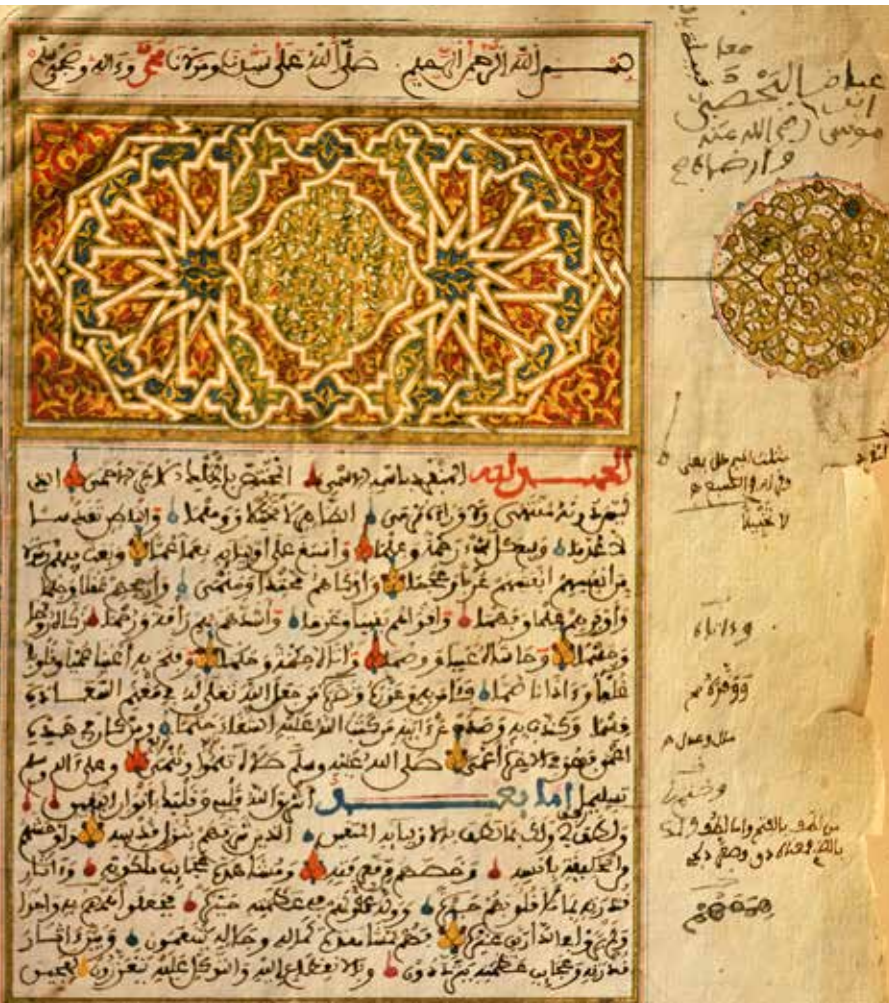 بسم الله الرحمن الرحيم صلى الله على سيدنا ومولانا محمد وءاله وصحبه وسلم
معا
عياض اليحصبي
موسى رحمه الله عنه
وأرضاه
الحمد لله المنفرد باسمه الاسمى المختص بالملك الاعز الاحمى الذي
ليس دونه منتهى ولا وراءه مرمى الظاهر لا تخيلا ووهما والباطن تقدسا
لا عدما وسع كل شيء رحمة وعلما وأسبغ على أوليائه نعما عما وبعث فيهم رسولا
من أنفسهم أنفسهم عربا وعجما وأزكاهم محتدا ومنمى وأرجحهم عقلا وحلما
وأوفرهم علما وفهما وأقواهم يقينا وعزما وأشدهم بهم رأفة ورحما زكاه روحا
وجسما وحاشاه عيبا ووصما وءاتاه حكمة وحكما وفتح به أعينا عميا وقلوبا
غلفا وءاذانا صما فآمن به وعزره ونصره من جعل الله تعلى له في مغنم السعادة
قسما وكذب به وصدف عن ءاياته من كتب الله عليه الشقاء حتما ومن كان في هذه
أعمى فهو في الاخرة أعمى صلى الله عليه وسلم صلاة تنمو وتنمى وعلى ءاله وسلم
تسليما اما بعد أشرق الله قلبي وقلبك بأنوار اليقين
ولطف لي ولك بما لطف به لاوليائه المتقين الذين شرفهم بنزل قدسه وأوحشهم
من الخليقة بأنسه وخصهم من معرفته ومشاهدة عجائب ملكوته وءاثار
قدرته بما ملأ قلوبهم حبرة ووله عقولهم في عظمته حيرة فجعلوا همهم به واحدا
ولم يروا في الدارين غيره فهم بمشاهدة جماله وجلاله يتنعمون وبين ءاثار
قدرته وعجائب عظمته يترددون وبالانقطاع إليه والتوكل عليه يتعززون لهجين
لا تخييلا
وءاتاه